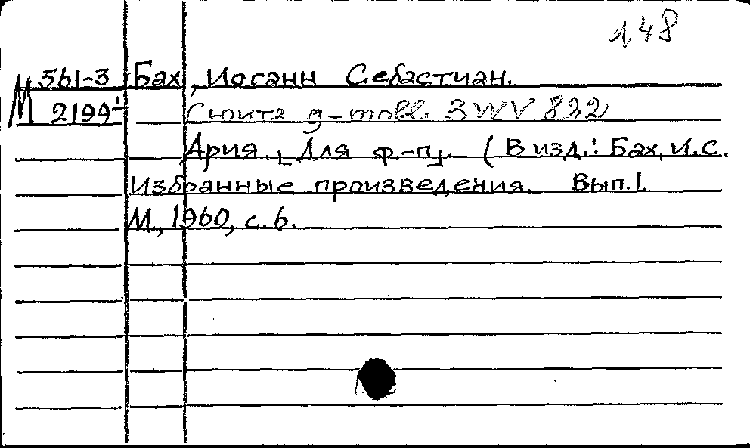 148
М 561-3 Бах, Иоганн Себастиан.
2199¹ Сюита g-moll. BWV 822
Ария. [Для ф-п]. (В изд.: Бах, И.С.
Избранные произведения. Вып.1.
М., 1960, с.6.